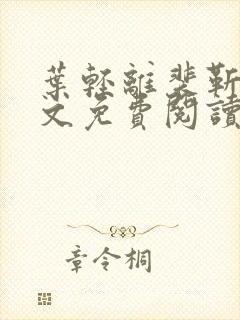 葉輕離裴靳
文免費閱讀
章令桐